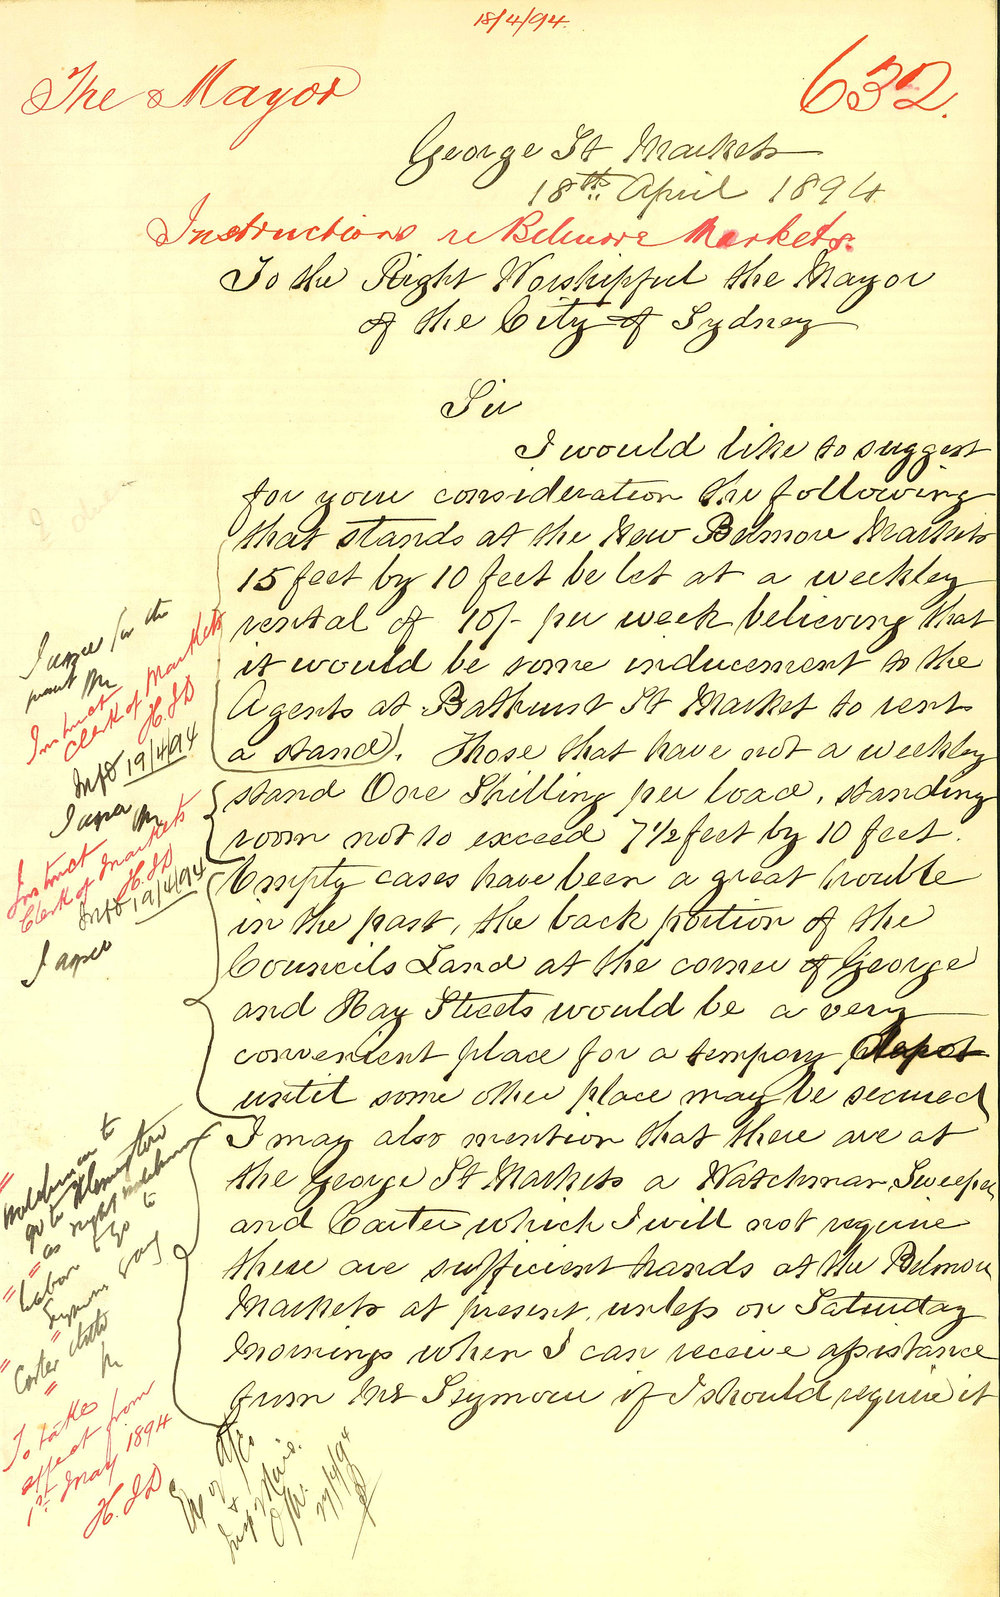 18/4/94.
The Mayor
632.
George St Markets
18th April 1894
Instructions re Belmore Markets.
To the Right Worshipful the Mayor
of the City of Sydney
Sir
I would like to suggest
for your consideration the following
that stands at the New Belmore Markets
15 feet by 10 feet be let at a weekley
rental of 10/- per week believing that
it would be some inducement to the
Agents at Bathurst St Market to rent
a stand). Those that have not a weekley
stand One Shilling per load, standing
room not to exceed 7½ feet by 10 feet.
Empty cases have been a great trouble
in the past, the back portion of the
Councils Land at the corner of George
and Hay Streets would be a very
convenient place for a tempory depot
until some other place may be secured
I may also mention that there are at
the George St Markets a Watchman, Sweeper
and Carter which I will not require
there are sufficient hands at the Belmore
Markets at present, unless on Saturday
Mornings when I can receive assistance
from Mr Seymour if I should require it
I agree for the
present
Instruct
Clerk of Markets
H.S.D
Infd 19/4/94
I agree
Instruct
Clerk of Markets
H.S.D
Infd 19/4/94
I agree
Watchman to
go to Flemington
as night watchman
to go to
Seymour
Carter ditto
To take
effect from
1st May 1894
H.S.D